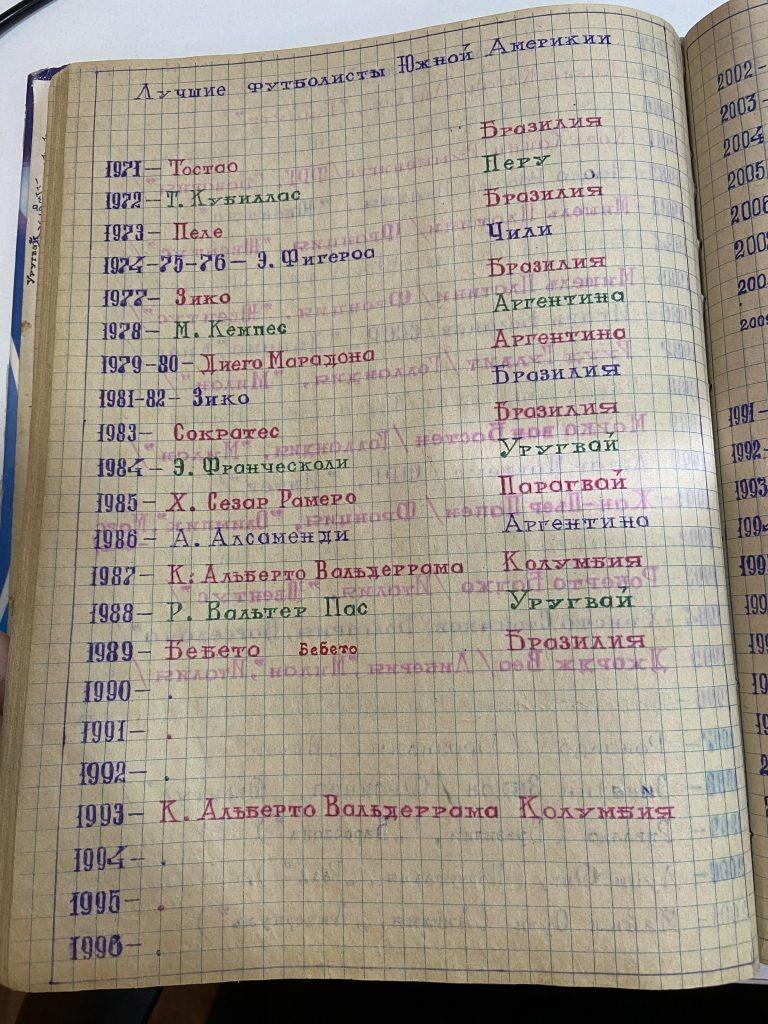 Лучшие футболисты Южной Америкии
1971 – Тостао Бразилия
1972 – Т. Кубиллас Перу
1973 – Пеле Бразилия
1974-75-76 – Э. Фигероа Чили
1977 – Зико Бразилия
1978 – М. Кемпес Аргентина
1979-80 – Диего Марадона Аргентина
1981-82 – Зико Бразилия
1983 – Сократес Бразилия
1984 – Э. Франческоли Уругвай
1985 – Х. Сезар Рамеро Парагвай
1986 – А. Алсаменди Аргентина
1987 – К. Альберто Вальдеррама Колумбия
1988 – Р. Вальтер Пас Уругвай
1989 – Бебето Бебето Бразилия
1990 – .
1991 – .
1992 – .
1993 – К. Альберто Вальдеррама Колумбия
1994 – .
1995 – .
1996 – .
2002 –
2003 –
2004
2005
2006
1991 –
1992 –
1993